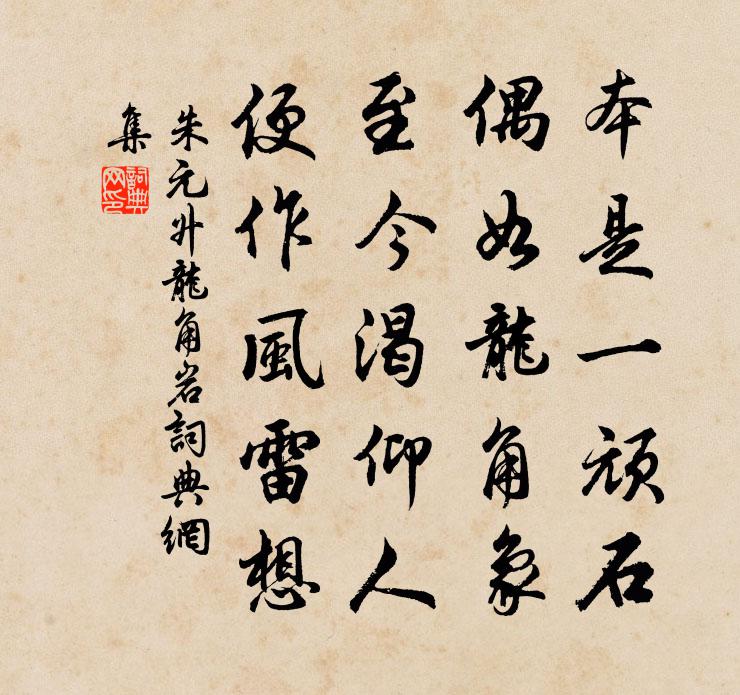 本是一頑石
偶如龍角象
至今渴仰人
便作風雷想
朱元升龍角岩詞典網
集
詞典網印